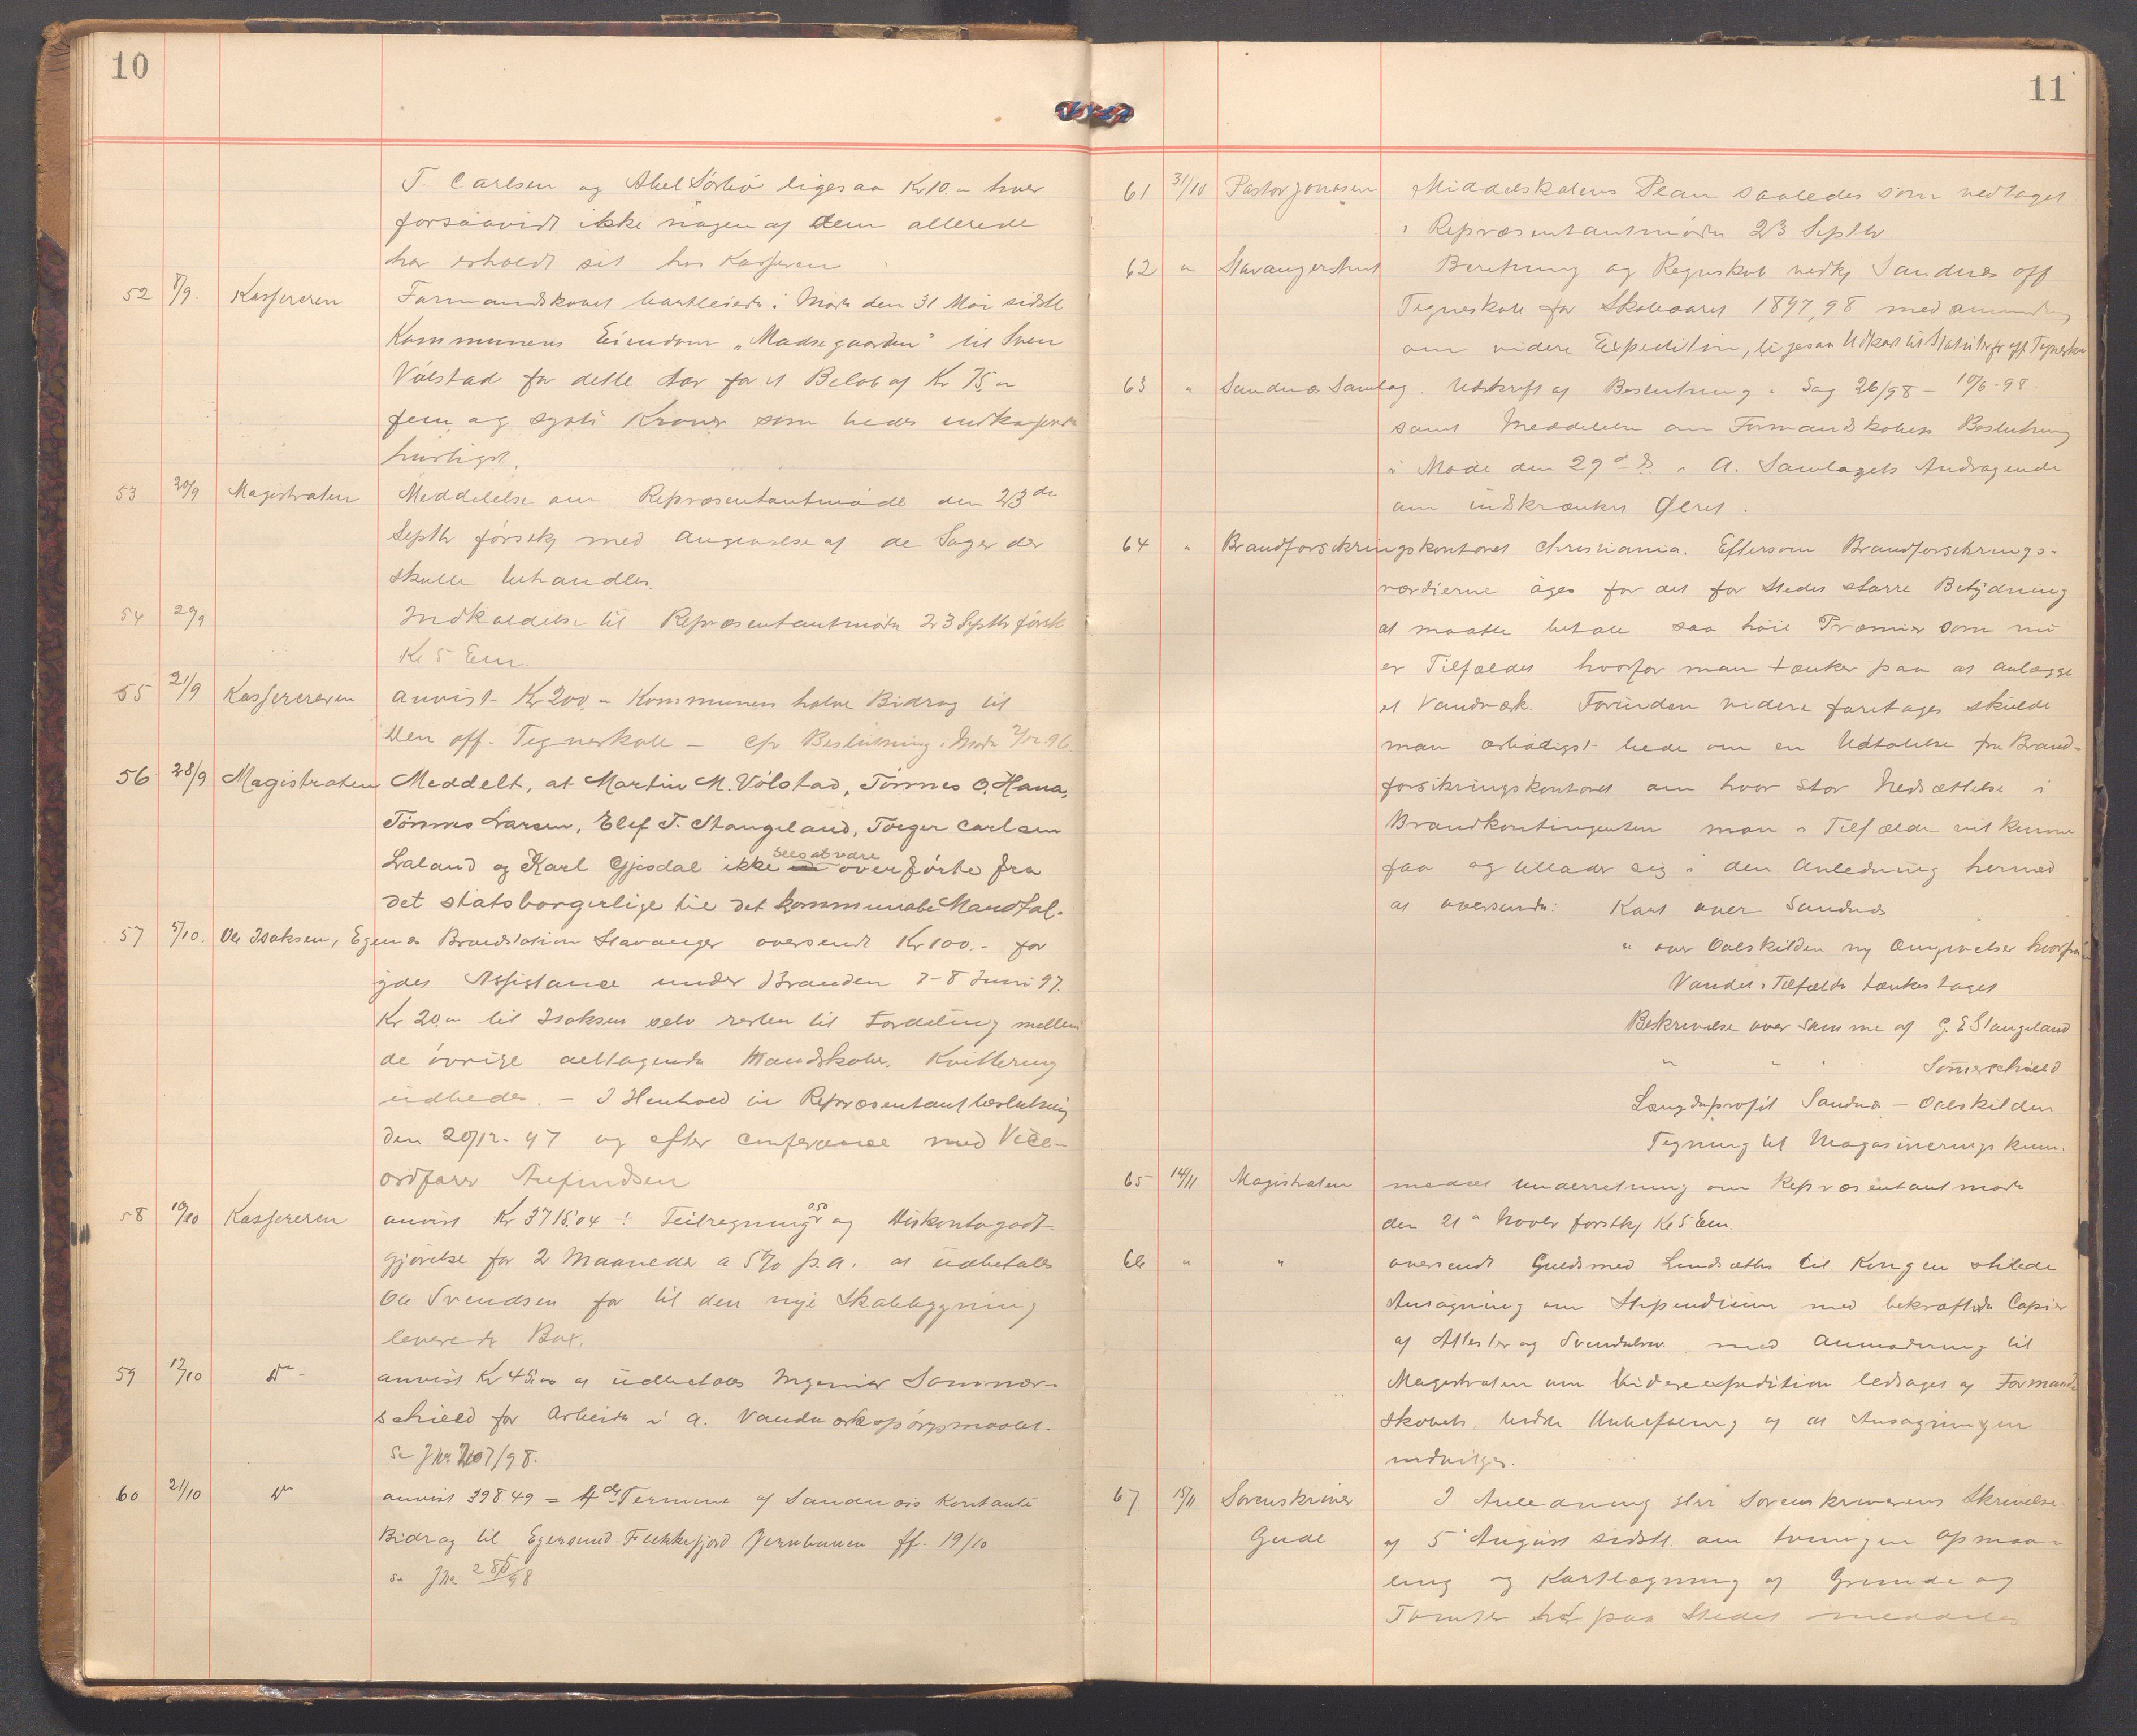 10
T. Carlsen og Abel Sørbø ligesaa Kr 10.- hver
forsaavidt ikke nogen af dem allerede
har erholdt sit hos Kasseren
52 8/9. Kassereren Formandskabet bortleiede i Møde den 31 Mai sidstl
Kommunens Eiendom „Madsegaarden" til Sven
Vølstad for dette Aar for et Beløb af Kr 75,-
fem og sytti Kroner som bedes indkasseret
hurtigst.
53 20/9 Magistraten Meddelelse om Repræsentantmøde den 23de
Septbr førstk med Angivelse af de Sager der
skulle behandles.
54 20/9 Indkaldelse til Repræsentantmøde 23 Septbr førstk
Kl 5 Em.
55 21/9 Kassereren anvist Kr 200,- Kommunens halve Bidrag til
Den off. Tegneskole - cfr Beslutning i Møde 2/12 96
56 28/9 Magistraten Meddelt, at Martin M. Vølstad, Tønnes O. Hana,
Tønnes Larsen, Elef T. Stangeland, Torger Carlsen
Laland og Karl Gjesdal ikke sees at være overførte fra
det statsborgerlige til det kommunale Mandtal.
57 5/10. Ole Isaksen, Egenes Brandstation Stavanger oversendt Kr 100.- for
ydet Assistance under Branden 7-8 Juni 97.
Kr 20.- til Isaksen selv resten til Fordeling mellem
de øvrige deltagende Mandskaber. Kvittering
udbedes. - I Henhold til Repræsentantbeslutning
den 20/12-97 og efter conferance med Vice-
ordfører Aufindsen
58 10/10 Kassereren anvist Kr 3715,04 ÷ Feilregning 0,50 og Diskontogodt-
gjørelse for 2 Maaneder a 5% p.a. at udbetales
Ole Svendsen for til den nye Skolebygning
leverede Box.
59 12/10 Do - anvist Kr 45,00 at udbetales Ingeniør Sommer-
schield for Arbeide i A. Vandværksspørgsmaalet.
Se Jno 207/98.
60 21/10 Do anvist 398.49 = 4de Termine af Sandnæs Kontante
Bidrag til Egersund-Flekkefjord Jernbanen ff. 19/10
se Jno 280/98
11
61 31/10 Pastor Jonasen Middelskolens Plan saaledes som vedtaget
i Repræsentantmøde 23 Septbr.
62 " Stavanger Amt Beretning og Regnskab vedkj Sandnæs off
Tegneskole for Skoleaaret 1897,98 med anmodning
om videre Expedition, ligesaa Udkast til Statuter for off. Tegneskole
63 " Sandnæs Samlag. Udskrift af Beslutning i Sag 26/98 - 10/6-98.
samt Meddelelse om Formandskabets Beslutning
i Møde den 29de ds i A. Samlagets Andragende
om indskrænket Ølret.
64 " Brandforsikringskontoret Christiania. Eftersom Brandforsikrings-
værdierne øges får det for Stedet større Betydning
at maatte betale saa høie Præmier som nu
er Tilfældet hvorfor man tænker paa at anlægge
et Vandværk. Forinden videre foretages skulde
man ærbødigst bede om en Udtalelse fra Brand-
forsikringskontoret om hvor stor Nedsættelse i
Brandkontingenten man i Tilfælde vil kunne
faa og tillader sig i den Anledning hermed
at oversende: Kart over Sandnæs
" over Oalskilden og Angivelser hvorfra
Vandet i Tilfælde tænkes taget
Beskrivelse over samme af G. E Stangeland
" " " Somerschield
Længdeprofil Sandnæs - Oalskilden
Tegning til Magasineringskum.
65 14/11 Magistraten meddelt Underretning om Repræsentantmøde
den 21de Novbr førstkj Kl 5 Em.
66 " " oversendt Guldsmed Lindsæths til Kongen stilede
Ansøgning om Stipendium med bekræftede Copier
af Attester og Svendebrev med Anmodning til
Magistraten om Videreexpedition ledsaget af Formand-
skabets bedste Anbefaling af at Ansøgningen
indvilges.
67 15/11 Sorenskriver I Anledning Hr Sorenskriverens Skrivelse
Gude af 5 August sidstl. om tvungen Opmaa-
ling og Kartlægning af Grunde og
Tomter her paa Stedet meddeles